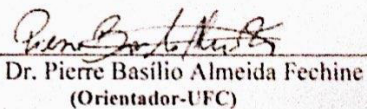 Dr. Pierre Basílio Almeida Fechine
(Orientador-UFC)